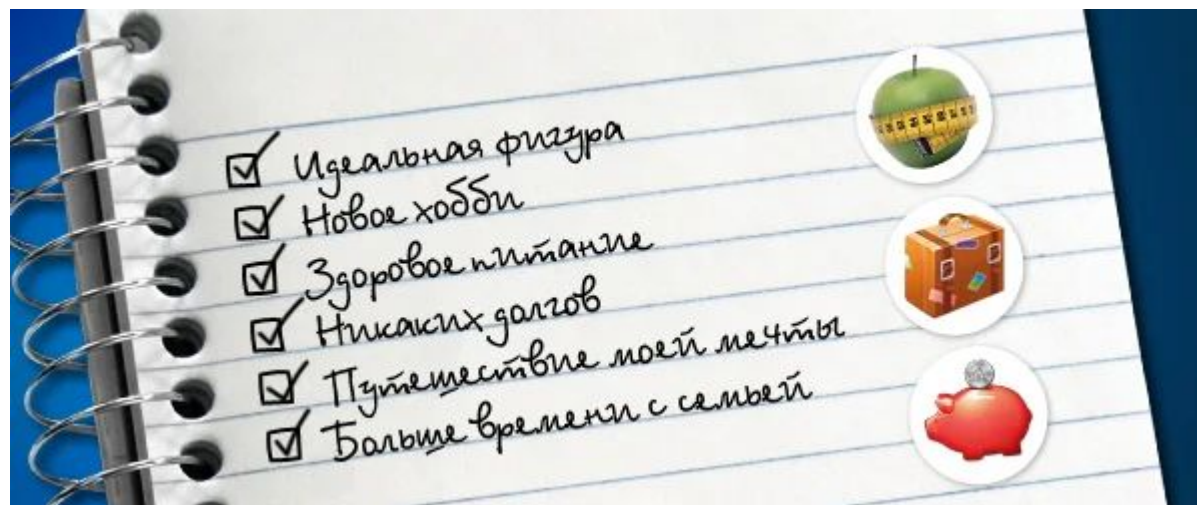 Идеальная фигура
Новое хобби
Здоровое питание
Никаких долгов
Путешествие моей мечты
Больше времени с семьей